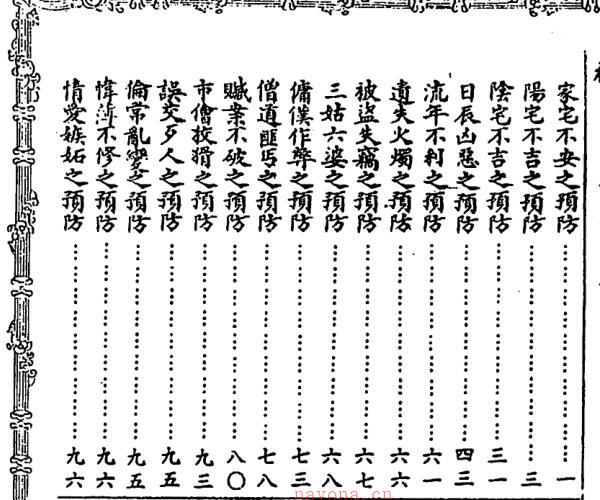 家宅不安之預防……一
陽宅不吉之預防……三
陰宅不吉之預防……三一
日辰凶惡之預防……四三
流年不利之預防……六一
遺失火燭之預防……六六
被盜失竊之預防……六七
三姑六婆之預防……六八
傭僕作弊之預防……七三
僧道匪丐之預防……七八
賊案不破之預防……八〇
市儈狡猾之預防……九三
誤交歹人之預防……九五
倫常亂變之預防……九五
幃薄不修之預防……九六
情愛嫉妬之預防……九六
nayona.cn